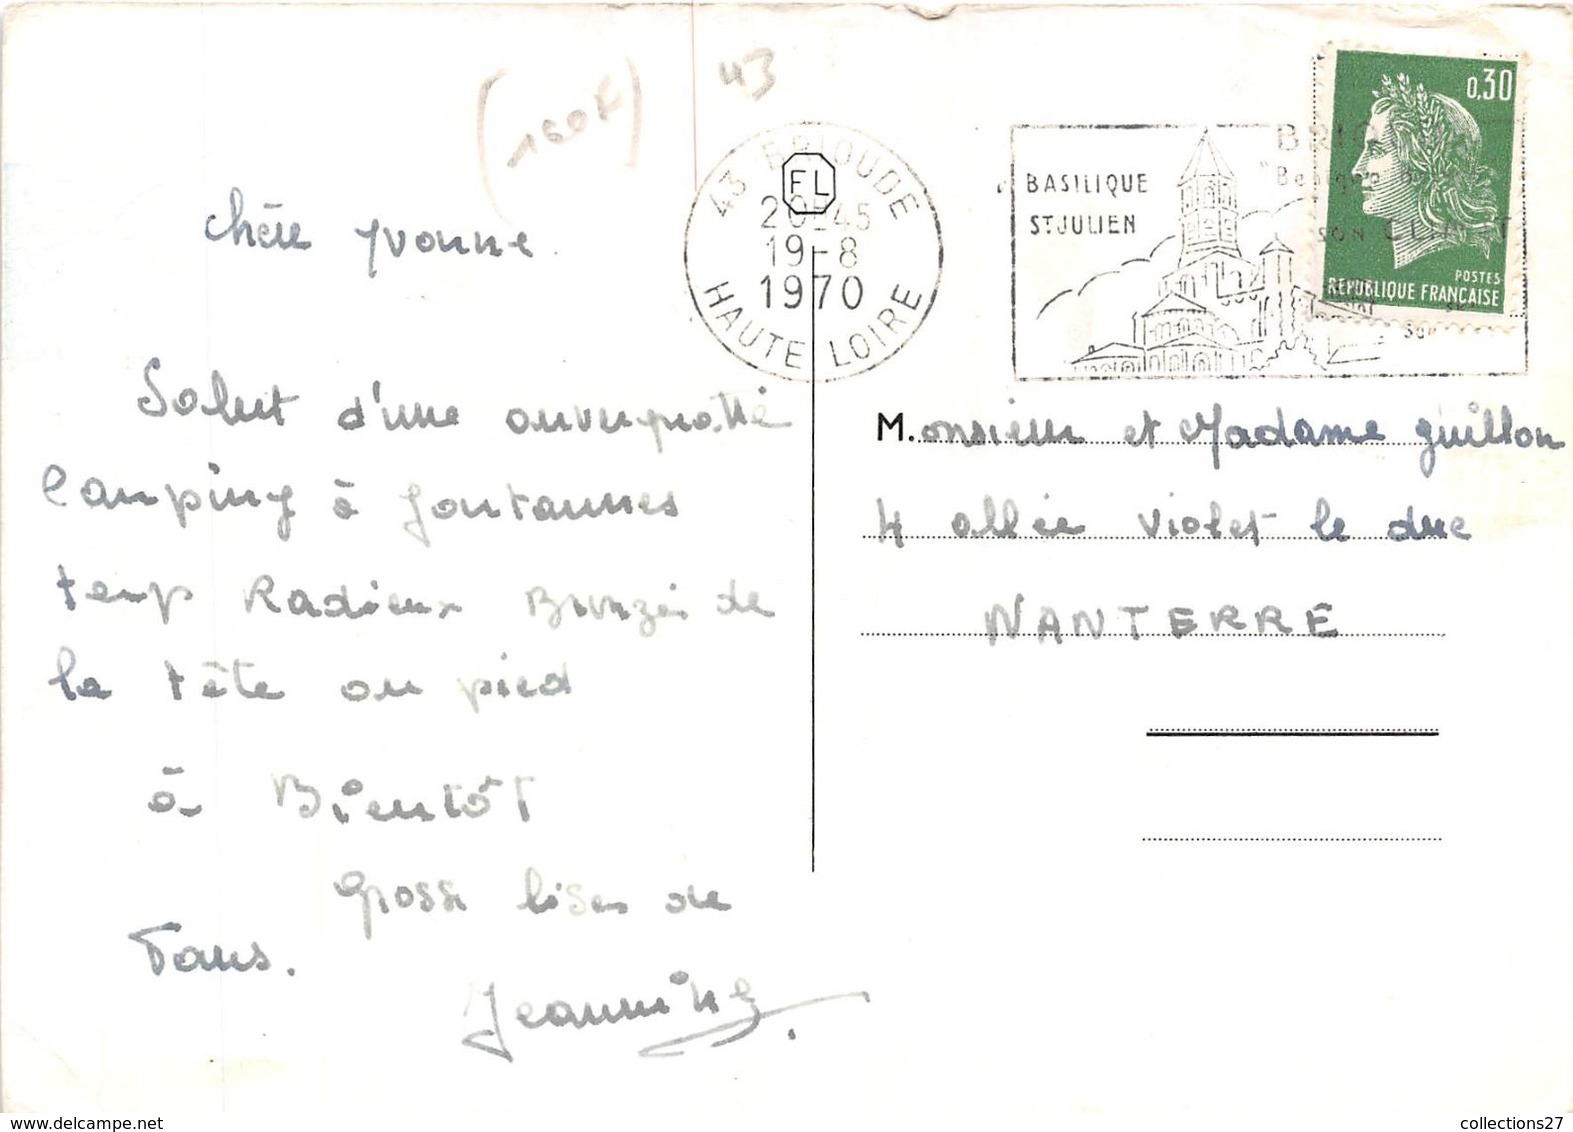 (160F)
43
43 BRIOUDE
FL
20H45
19-8
1970
HAUTE LOIRE
BASILIQUE
ST JULIEN
SON CLIMAT
0,30
POSTES
REPUBLIQUE FRANÇAISE
Chère Yvonne.
Salut d'une auvergnatte
Camping à Fontannes
temp Radieux Bronzés de
la tête au pied
à Bientôt
Gross bises de
Tous.
Jeannine
M.onsieur et Madame Guillon
4 allée Violet le duc
NANTERRE
collections27